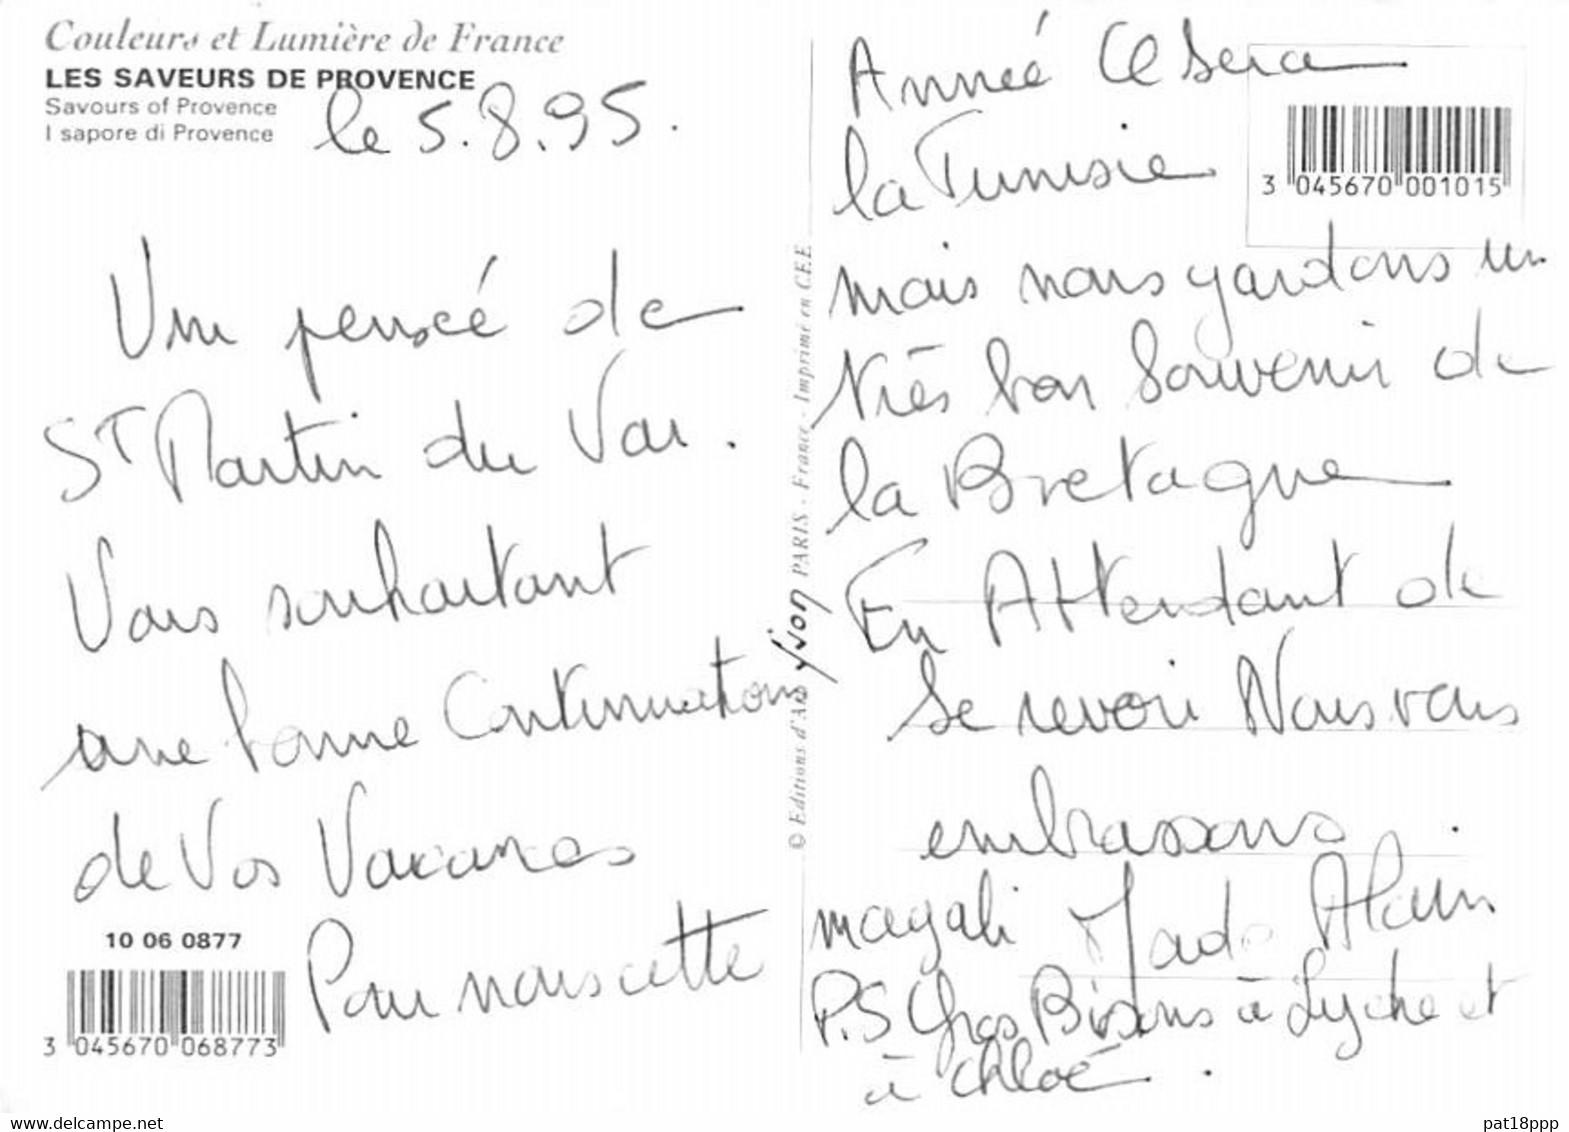 Couleurs et Lumière de France
LES SAVEURS DE PROVENCE
Savours of Provence
I sapore di Provence
le 5.8.95.
Une pensée de
St Martin du Var.
Vous souhaitant
une bonne Continuations
de Vos Vacances
Pour nous cette
10 06 0877
3 045670 068773
© Editions d'Art yvon PARIS - France - Imprimé en C.E.E
Année Ce sera
la Tunisie
3 045670 001015
mais nous gardons un
très bon Souvenir de
la Bretagne
En Attendant de
Se revoir Nous vous
embrassons.
magali Mado Alain
P.S Gros Bisous à et
à chloé.
pat18ppp